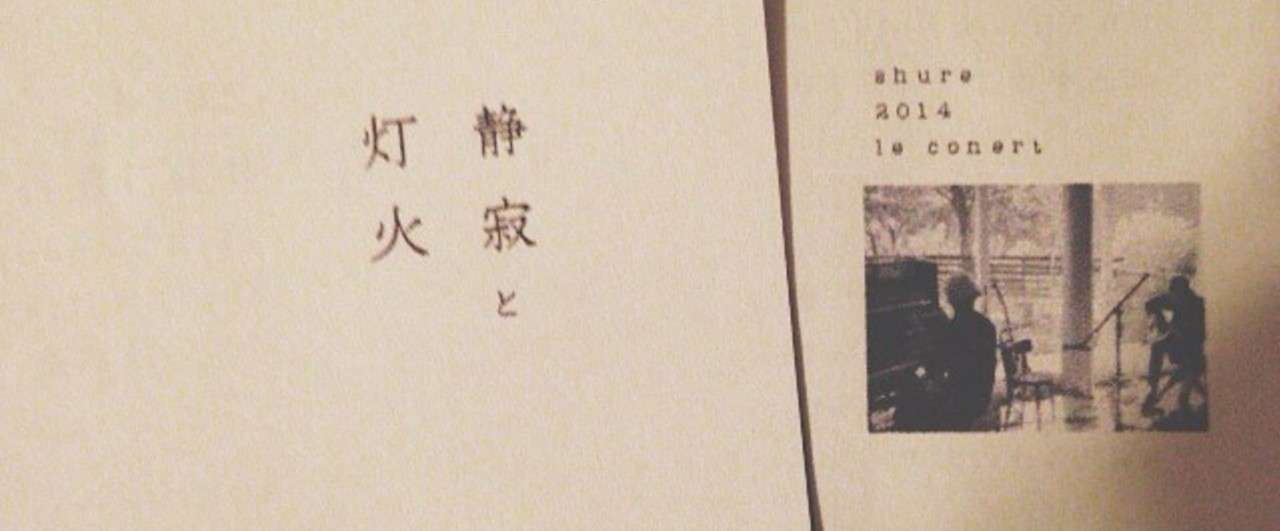 静寂と
灯火
shure
2014
le conert